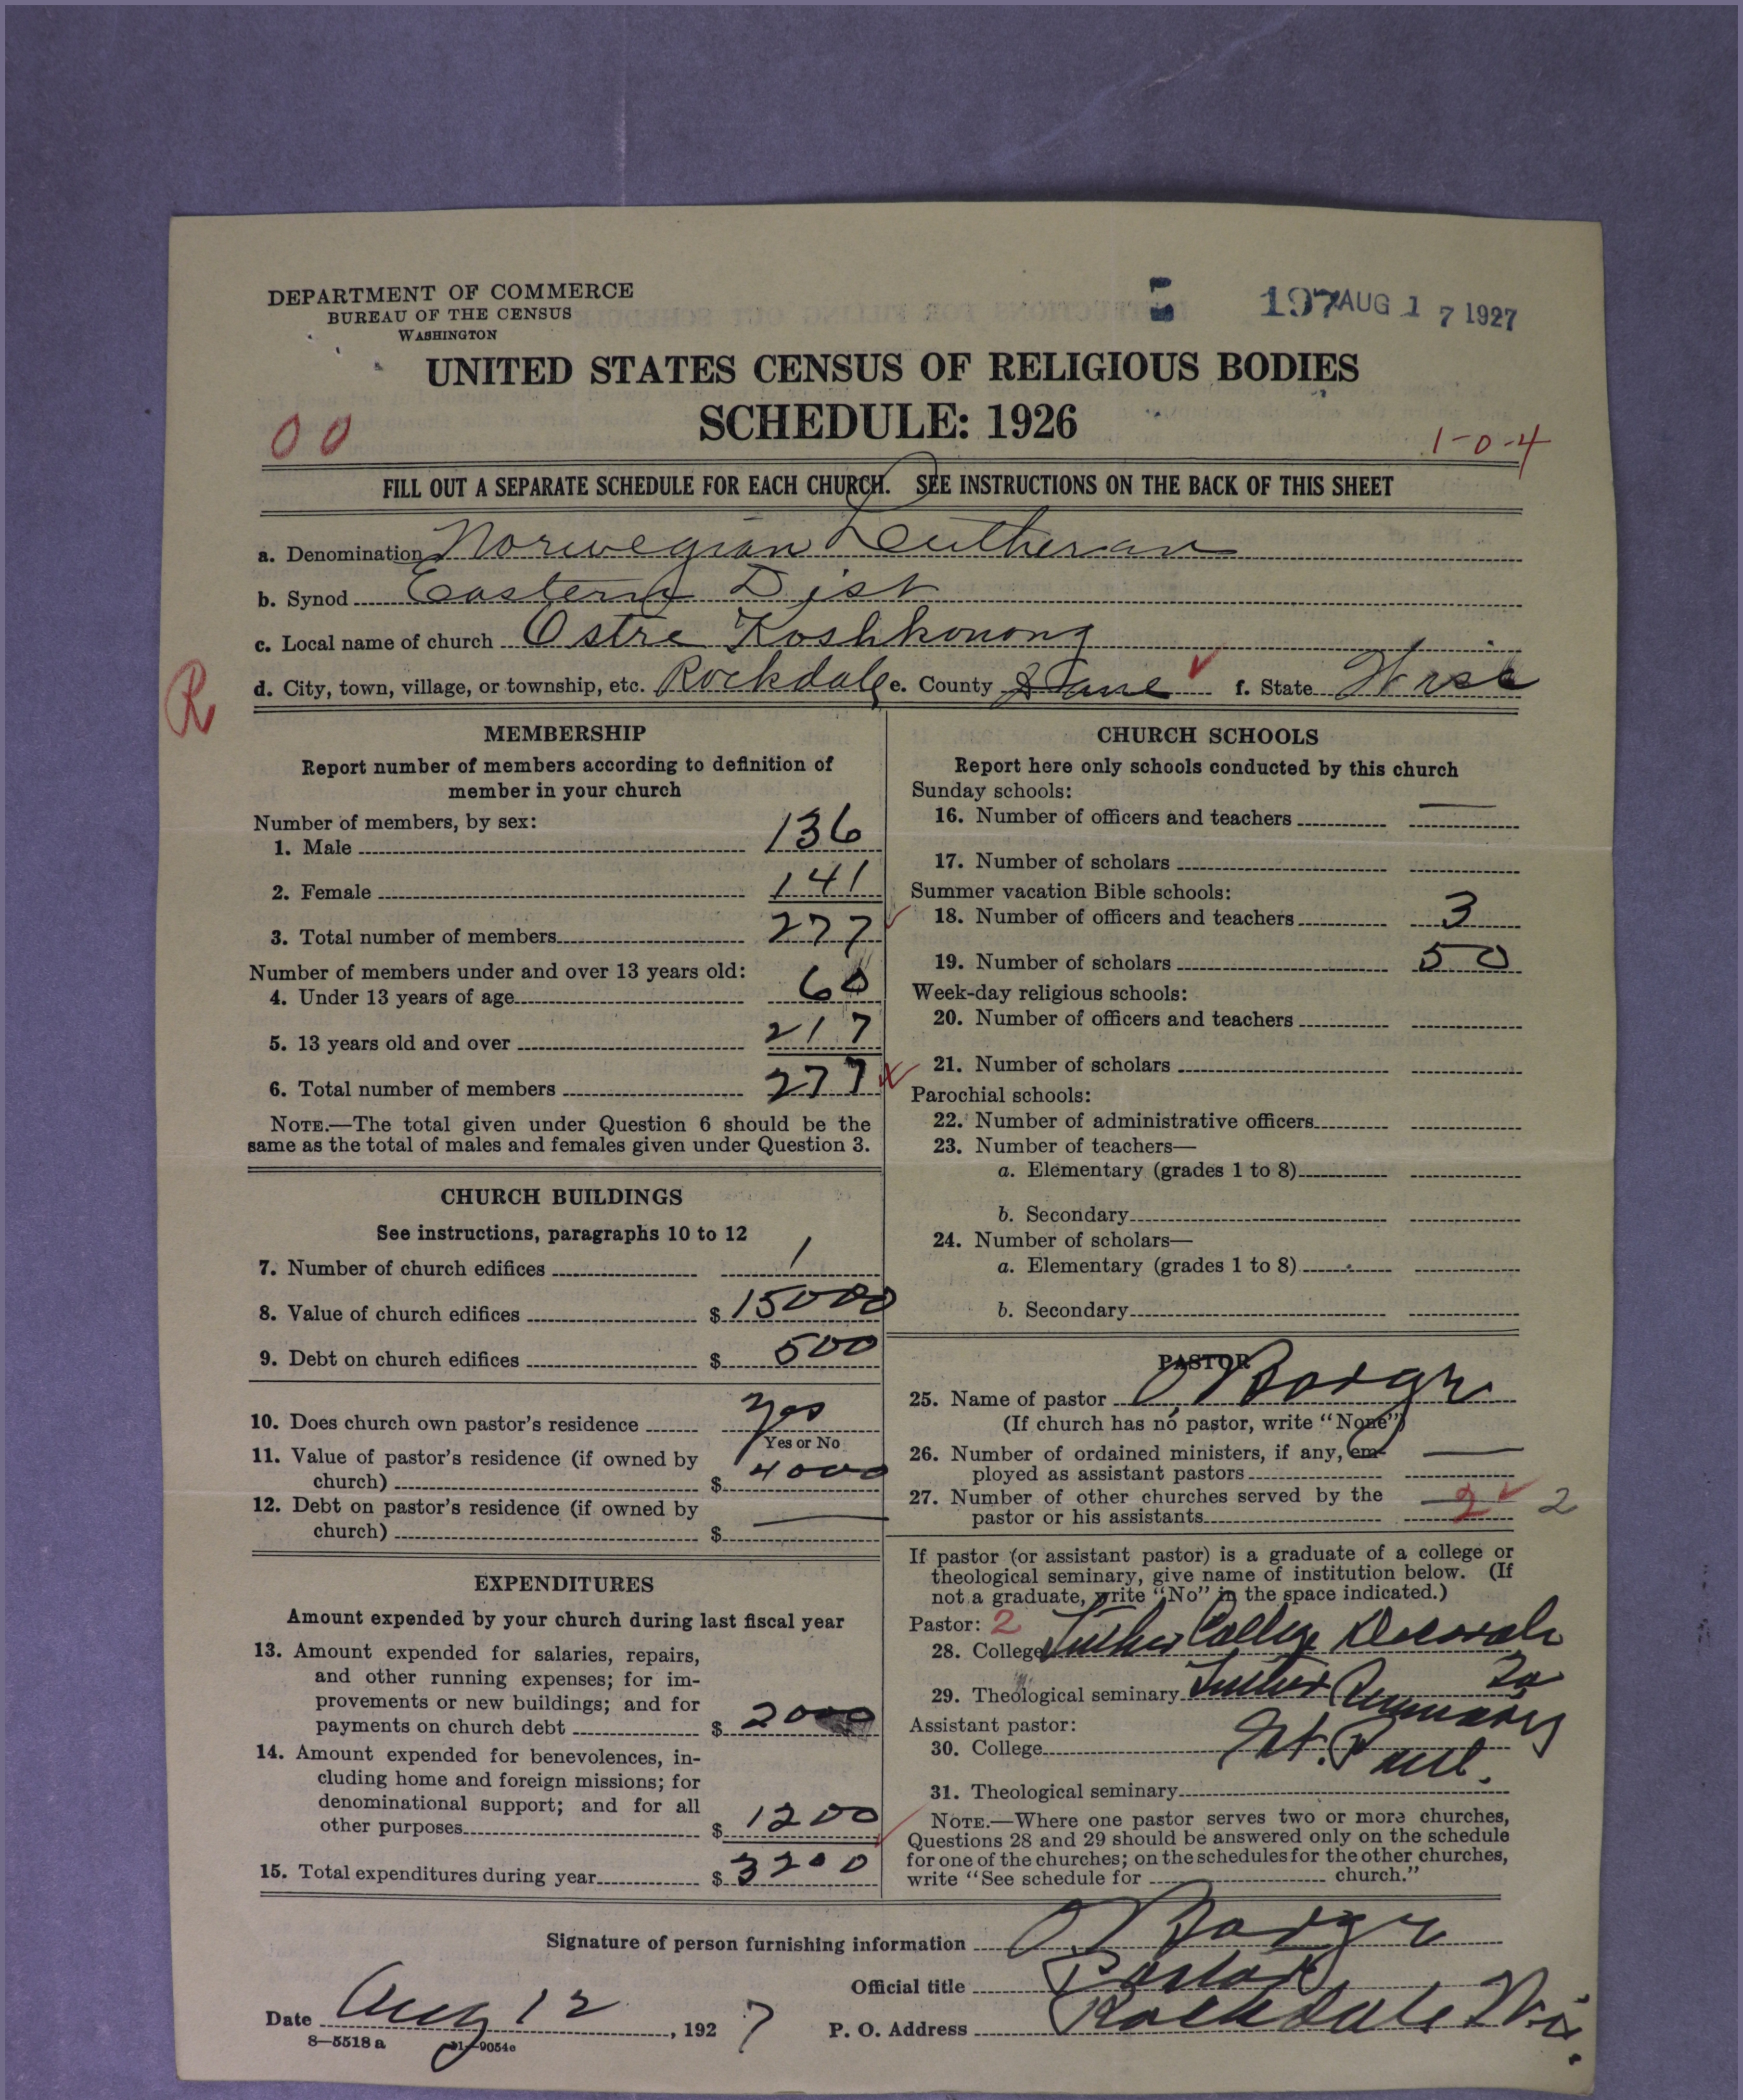 DEPARTMENT OF COMMERCE
BUREAU OF THE CENSUS
WASHINGTON
197 AUG 17 1927
UNITED STATES CENSUS OF RELIGIOUS BODIES
SCHEDULE: 1926
00
1-0-4
FILL OUT A SEPARATE SCHEDULE FOR EACH CHURCH. SEE INSTRUCTIONS ON THE BACK OF THIS SHEET
a. Denomination Norwegian Lutheran
b. Synod Eastern Dist
c. Local name of church Ostre Koshkonong
R
d. City, town, village, or township, etc. Rockdale e. County Dane f. State Wisc
MEMBERSHIP
Report number of members according to definition of
member in your church
Number of members, by sex:
1. Male 136
2. Female 141
3. Total number of members 277
Number of members under and over 13 years old:
4. Under 13 years of age 60
5. 13 years old and over 217
6. Total number of members 277
NOTE.—The total given under Question 6 should be the
same as the total of males and females given under Question 3.
CHURCH BUILDINGS
See instructions, paragraphs 10 to 12
7. Number of church edifices 1
8. Value of church edifices $ 15000
9. Debt on church edifices $ 500
10. Does church own pastor's residence yes
Yes or No
11. Value of pastor's residence (if owned by
church) $ 4000
12. Debt on pastor's residence (if owned by
church) $ —
EXPENDITURES
Amount expended by your church during last fiscal year
13. Amount expended for salaries, repairs,
and other running expenses; for im-
provements or new buildings; and for
payments on church debt $ 2000
14. Amount expended for benevolences, in-
cluding home and foreign missions; for
denominational support; and for all
other purposes $ 1200
15. Total expenditures during year $ 3200
CHURCH SCHOOLS
Report here only schools conducted by this church
Sunday schools:
16. Number of officers and teachers —
17. Number of scholars
Summer vacation Bible schools:
18. Number of officers and teachers 3
19. Number of scholars 50
Week-day religious schools:
20. Number of officers and teachers
21. Number of scholars
Parochial schools:
22. Number of administrative officers
23. Number of teachers—
a. Elementary (grades 1 to 8)
b. Secondary
24. Number of scholars—
a. Elementary (grades 1 to 8)
b. Secondary
PASTOR
25. Name of pastor O
(If church has no pastor, write "None")
26. Number of ordained ministers, if any, em-
ployed as assistant pastors —
27. Number of other churches served by the
pastor or his assistants 2 2
If pastor (or assistant pastor) is a graduate of a college or
theological seminary, give name of institution below. (If
not a graduate, write "No" in the space indicated.)
Pastor: 2
28. College Luther College Decorah
Ia
29. Theological seminary Luther Seminary
Assistant pastor:
30. College St. Paul.
31. Theological seminary
NOTE.—Where one pastor serves two or more churches,
Questions 28 and 29 should be answered only on the schedule
for one of the churches; on the schedules for the other churches,
write "See schedule for church."
Signature of person furnishing information O
Official title Pastor
Date Aug 12, 1927 P. O. Address Rockdale Wis.
8—5518 a 11—9054c